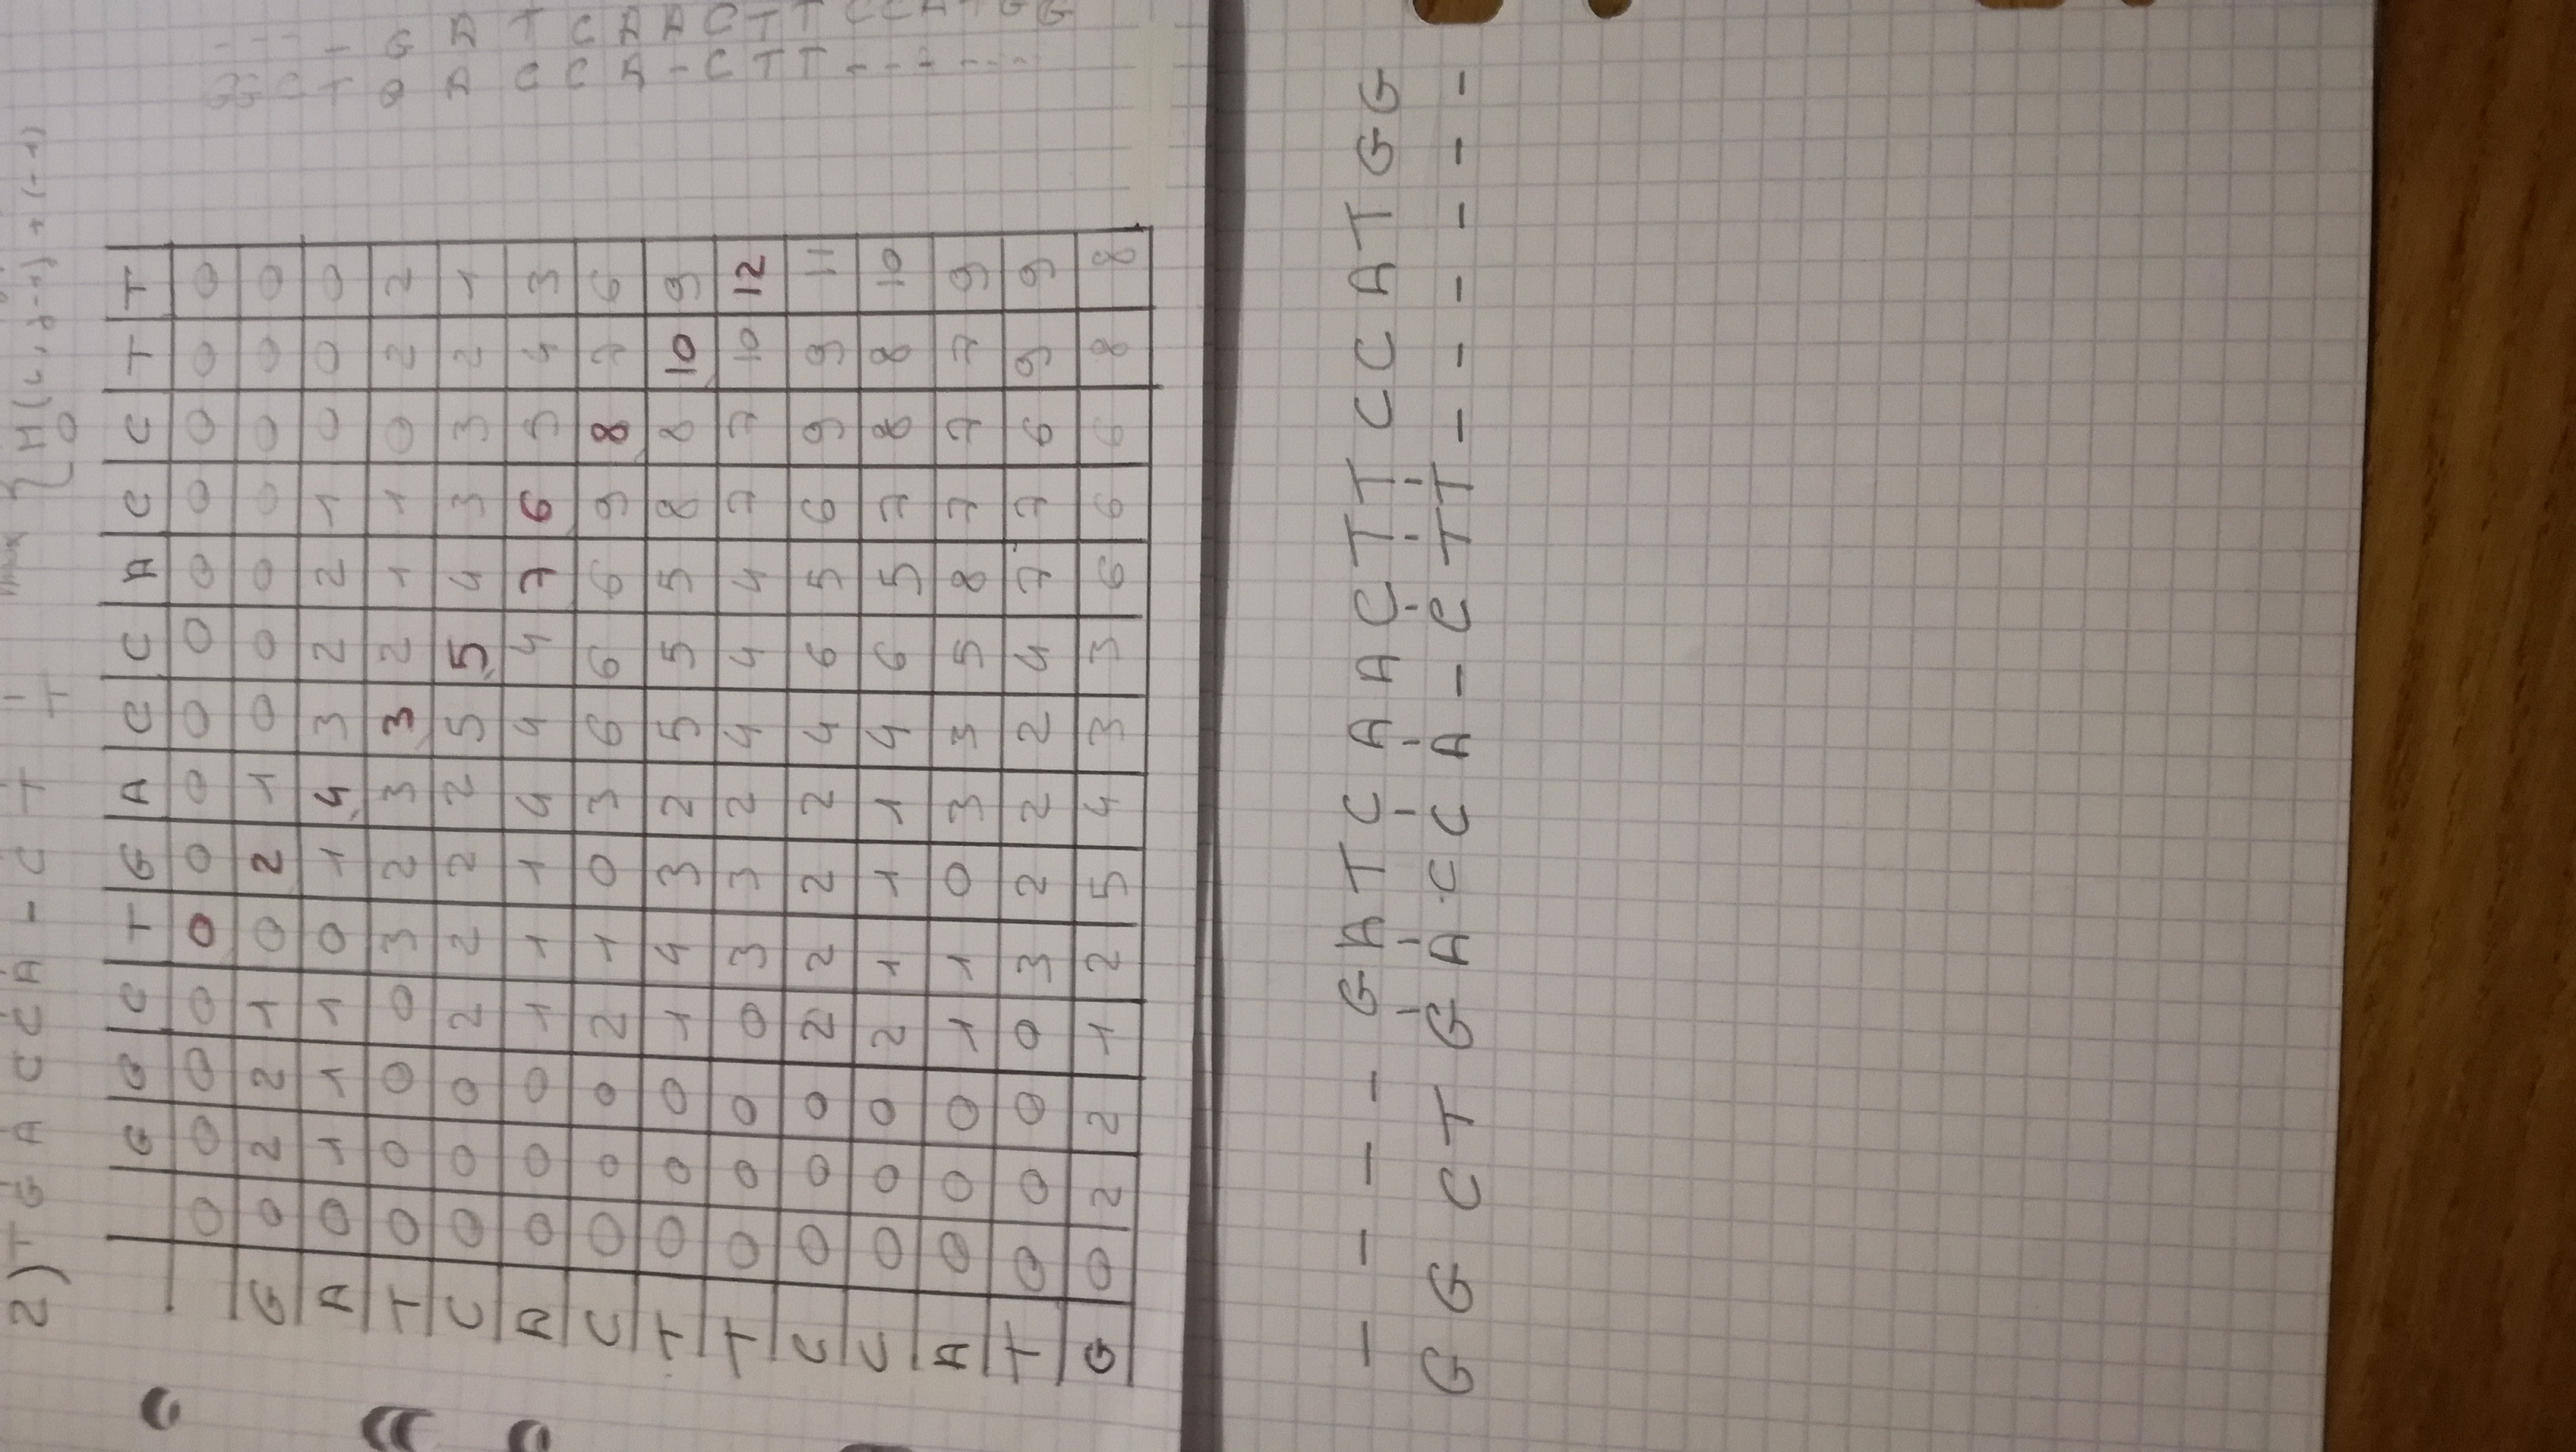 2) T G A C C A - C T T
H(i, j-1) + (-1)
0
G G C T G A C C A C C T T
0 0 0 0 0 0 0 0 0 0 0 0 0 0
G 0 2 2 1 0 2 1 0 0 0 0 0 0 0
A 0 1 1 1 0 1 4 3 2 2 1 0 0 0
T 0 0 0 0 3 2 3 3 2 1 1 0 2 2
C 0 0 0 2 2 2 2 5 5 4 3 3 2 1
A 0 0 0 1 1 1 4 4 4 7 6 5 4 3
C 0 0 0 2 1 0 3 6 6 6 9 8 7 6
T 0 0 0 1 4 3 2 5 5 5 8 8 10 9
T 0 0 0 0 3 3 2 4 4 4 7 7 10 12
C 0 0 0 2 2 2 2 4 6 5 6 9 9 11
C 0 0 0 2 1 1 1 4 6 5 7 8 8 10
A 0 0 0 1 1 0 3 3 5 8 7 7 7 9
T 0 0 0 0 3 2 2 2 4 7 7 6 9 9
G 0 2 2 1 2 5 4 3 3 6 6 6 8 8
- - - - G A T C A A C T T C C A T G G
G G C T G A C C A - C T T - - - - - -